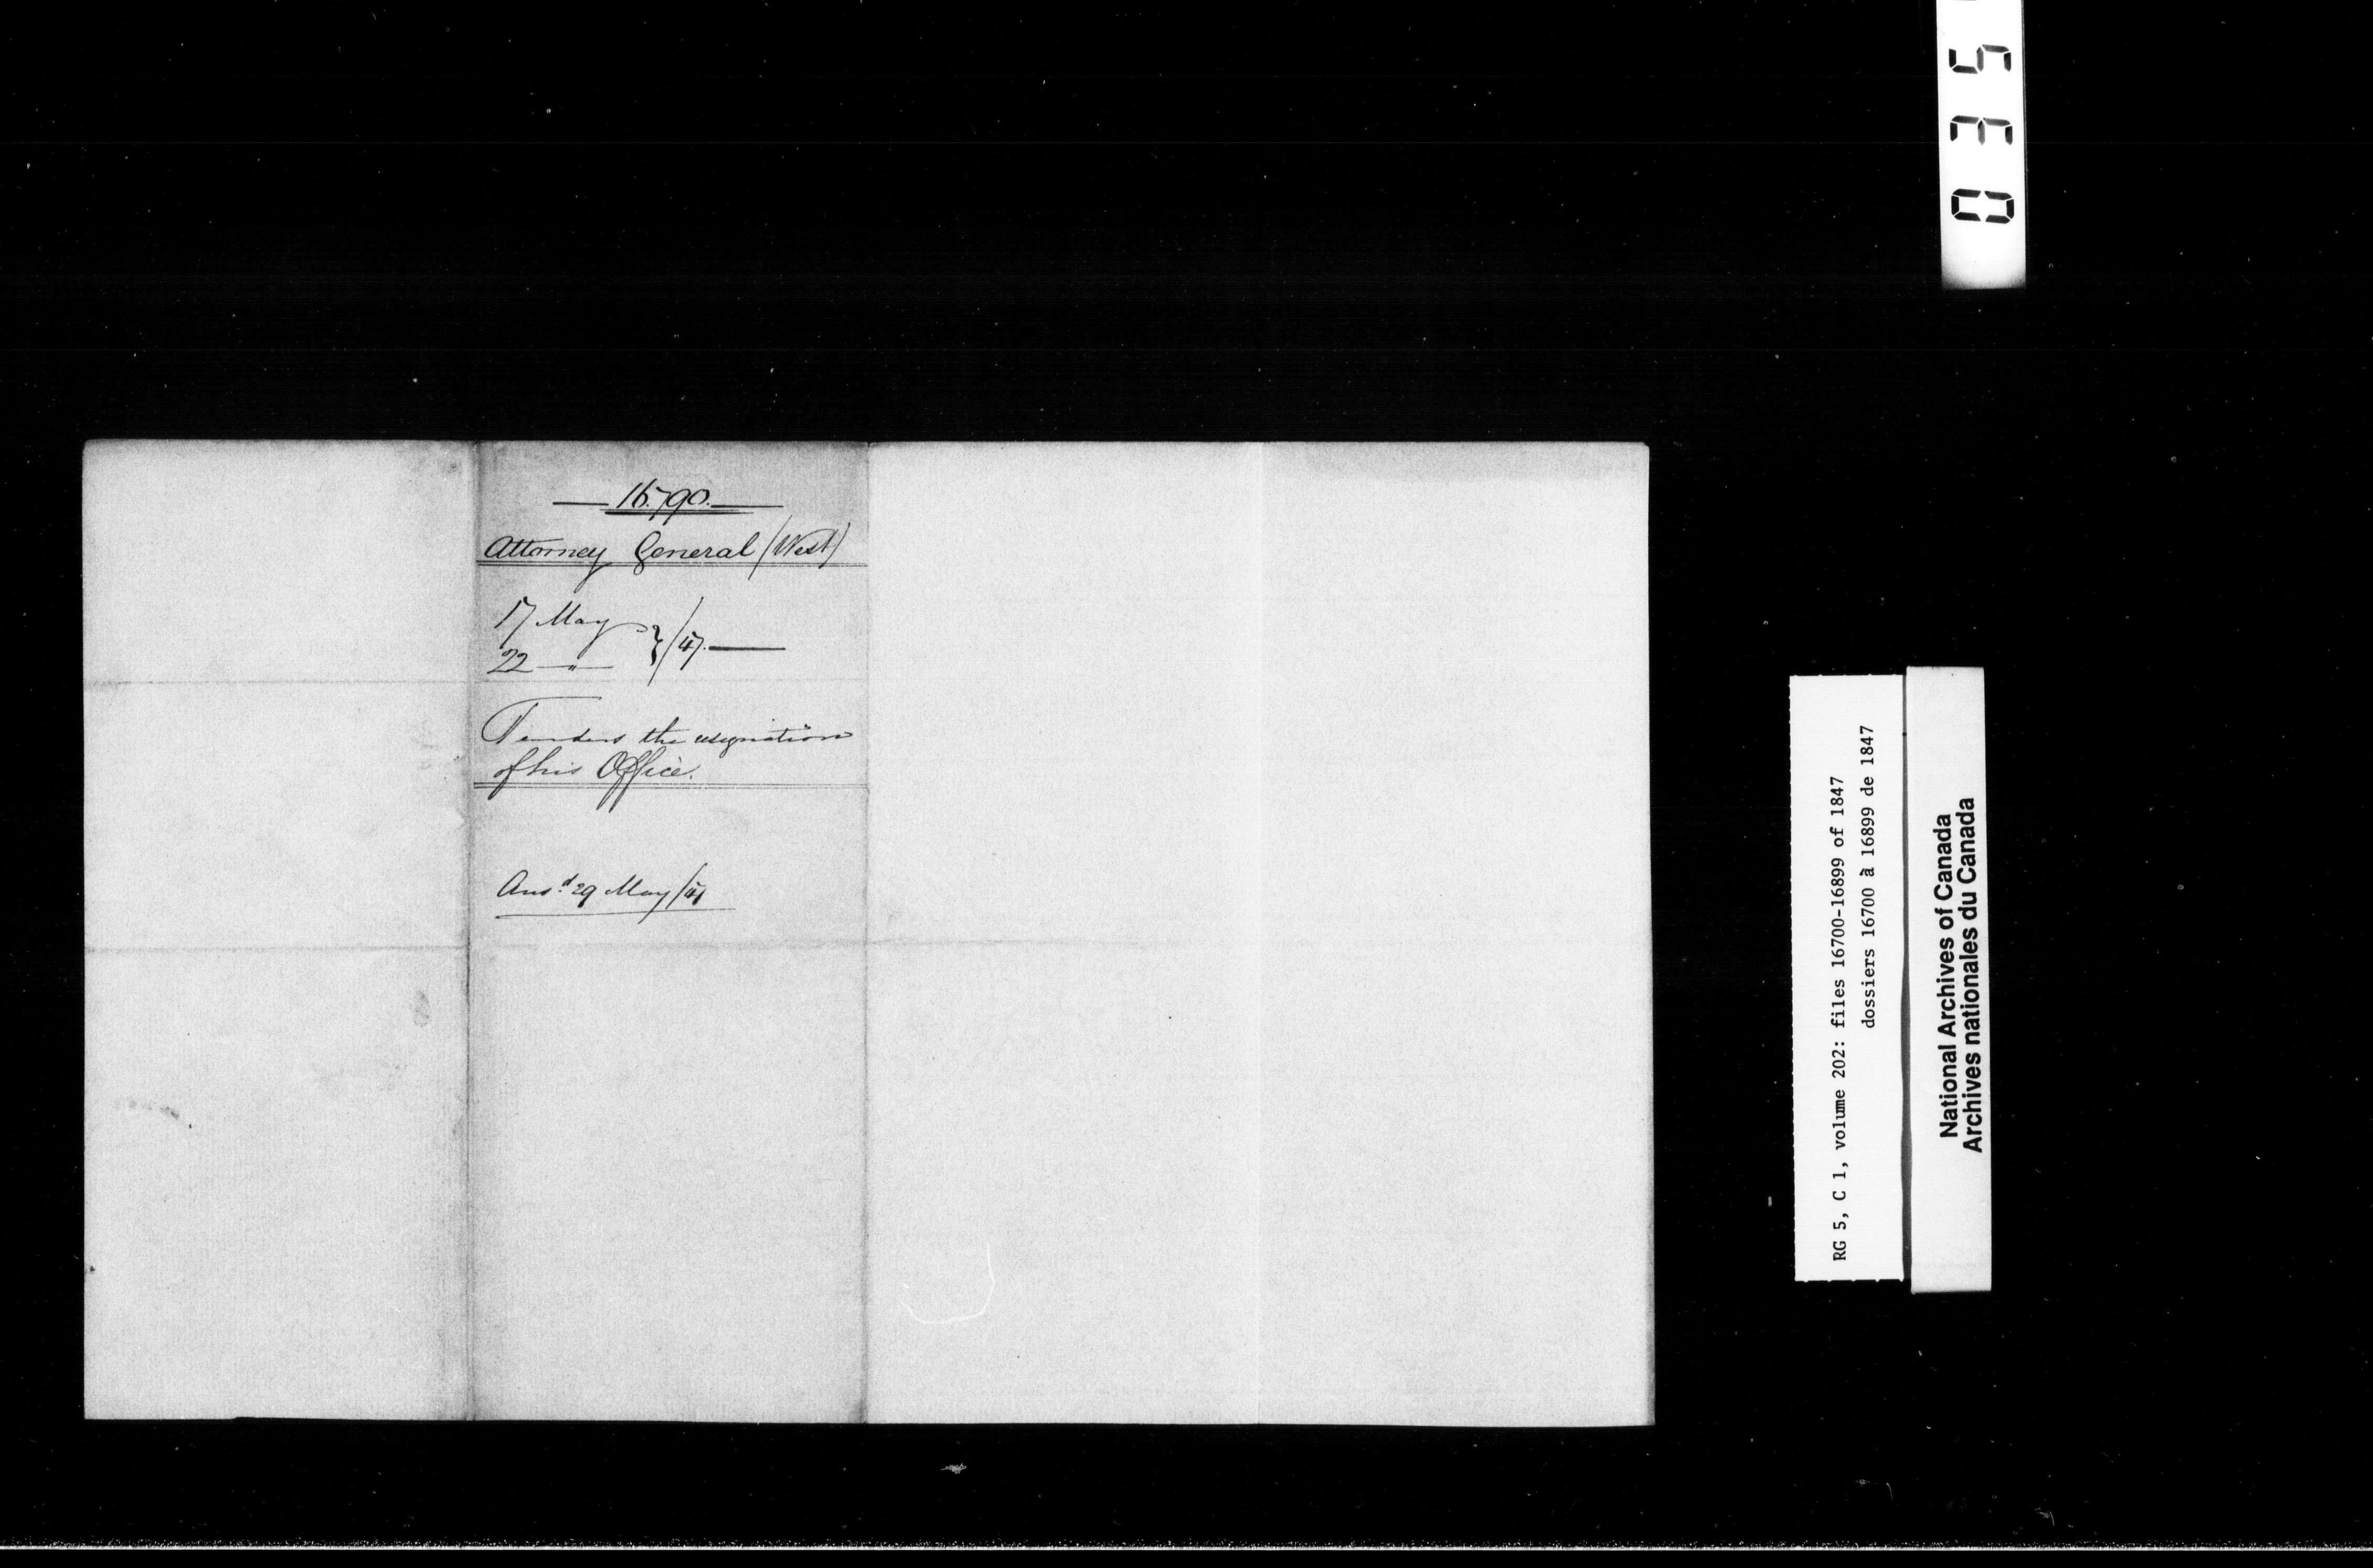 16.790.
Attorney General (West)
17 May } /47.
22 — " —
Tenders the resignation
of his Office.
Ansd 29 May /47
035
RG 5, C 1, volume 202: files 16700-16899 of 1847
dossiers 16700 à 16899 de 1847
National Archives of Canada
Archives nationales du Canada